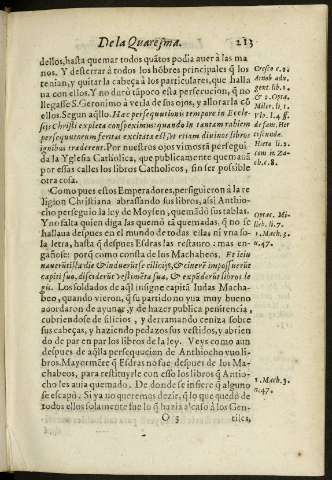 De la Quaresma. 213
dellos, hasta quemar todos quãtos podia auer à las ma
nos. Y desterrar à todos los hõbres principales q̃ los
tenian, y quitar la cabeça à los particulares, que halla
ua con ellos. Y no durò tãpoco esta persecucion, q̃ no
llegasse S. Geronimo à verla de sus ojos, y allorarla cõ
ellos. Segun aq̃llo. Hac persequutionis tempore in Eccle-
sijs Christi expleta conspeximus: quando in tantam rabiem
persequutorum feritas excitata est, Vt etiam diuinos libros
ignibus traderent. Por nuestros ojos vimos tã persegui
da la Yglesia Catholica, que publicamente quemauã
por essas calles los libros Catholicos, sin ser possible
otra cosa.
Como pues estos Emperadores, persiguieron à la re
ligion Christiana abrasando sus libros, assi Anthio-
cho perseguio la ley de Moysen, quemãdo sus tablas.
Y no falta quien diga las quemò tã quemadas, q̃ no se
hallaua despues en el mundo de todas ellas ni vna so-
la letra, hasta q̃ despues Esdras las restauro: mas en-
gañose: porq̃ como consta de los Machabeos. Et ieiu
nauerũt illa die & induerũt se cilicijs, & cinerẽ imposuerũt
capiti suo, disciderũt vestimẽta sua, & expãderũt libros le
gis. Los soldados de aq̃l insigne capitã Iudas Macha-
beo, quando vieron, q̃ su partido no yua muy bueno
acordaron de ayunar, y de hazer publica penitencia,
cubriendose de silicios, y derramando ceniza sobre
sus cabeças, y haziendo pedazos sus vestidos, y abrien
do de par en par los libros de la ley. Veys como aun
despues de aq̃lla persequucion de Anthiocho vuo li-
bros. Mayormẽte q̃ Esdras no fue despues de los Ma-
chabeos, para restituyrle con esso los libros q̃ Antio-
cho les auia quemado. De donde se infiere q̃ alguno
se escapó. Si ya no queremos dezir, q̃ lo que quedò de
todos ellos solamente fue lo q̃ hazia à caso à los Gen-
O 3 tiles,
Cresco c. 2.
Arnob. adu.
gent. lib. 4.
& 2. Opta.
Milet. li. 1.
de sam. Her
ciscunde.
Opta. Mi-
lib. li. 7.
1. Mach. 3.
n. 47.
1. Mach. 3.
n. 47.